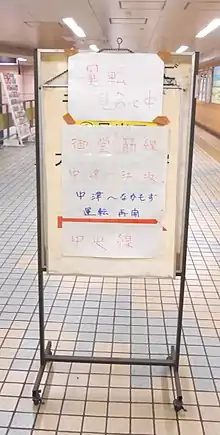 運転
見合わせ中
御堂筋線
中津―江坂
中津〜なかもず
運転再開
中央線